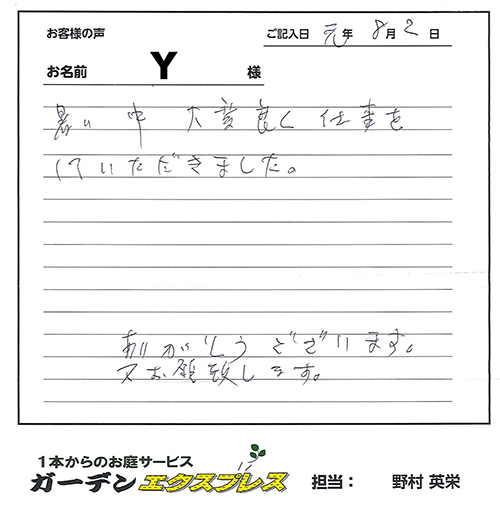 お客様の声
ご記入日 元年 8月2日
お名前 Y 様
暑い中 大変良く仕事を
していただきました。
ありがとうございます。
又お願致します。
1本からのお庭サービス
ガーデンエクスプレス 担当： 野村 英栄